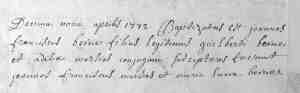 Decima nona aprilis 1772 Baptizatus est joannes
franciscus bernes filius legitimus guilberti bernes
et conjugum susceptores fuerunt
joannes franciscus et maria bernes